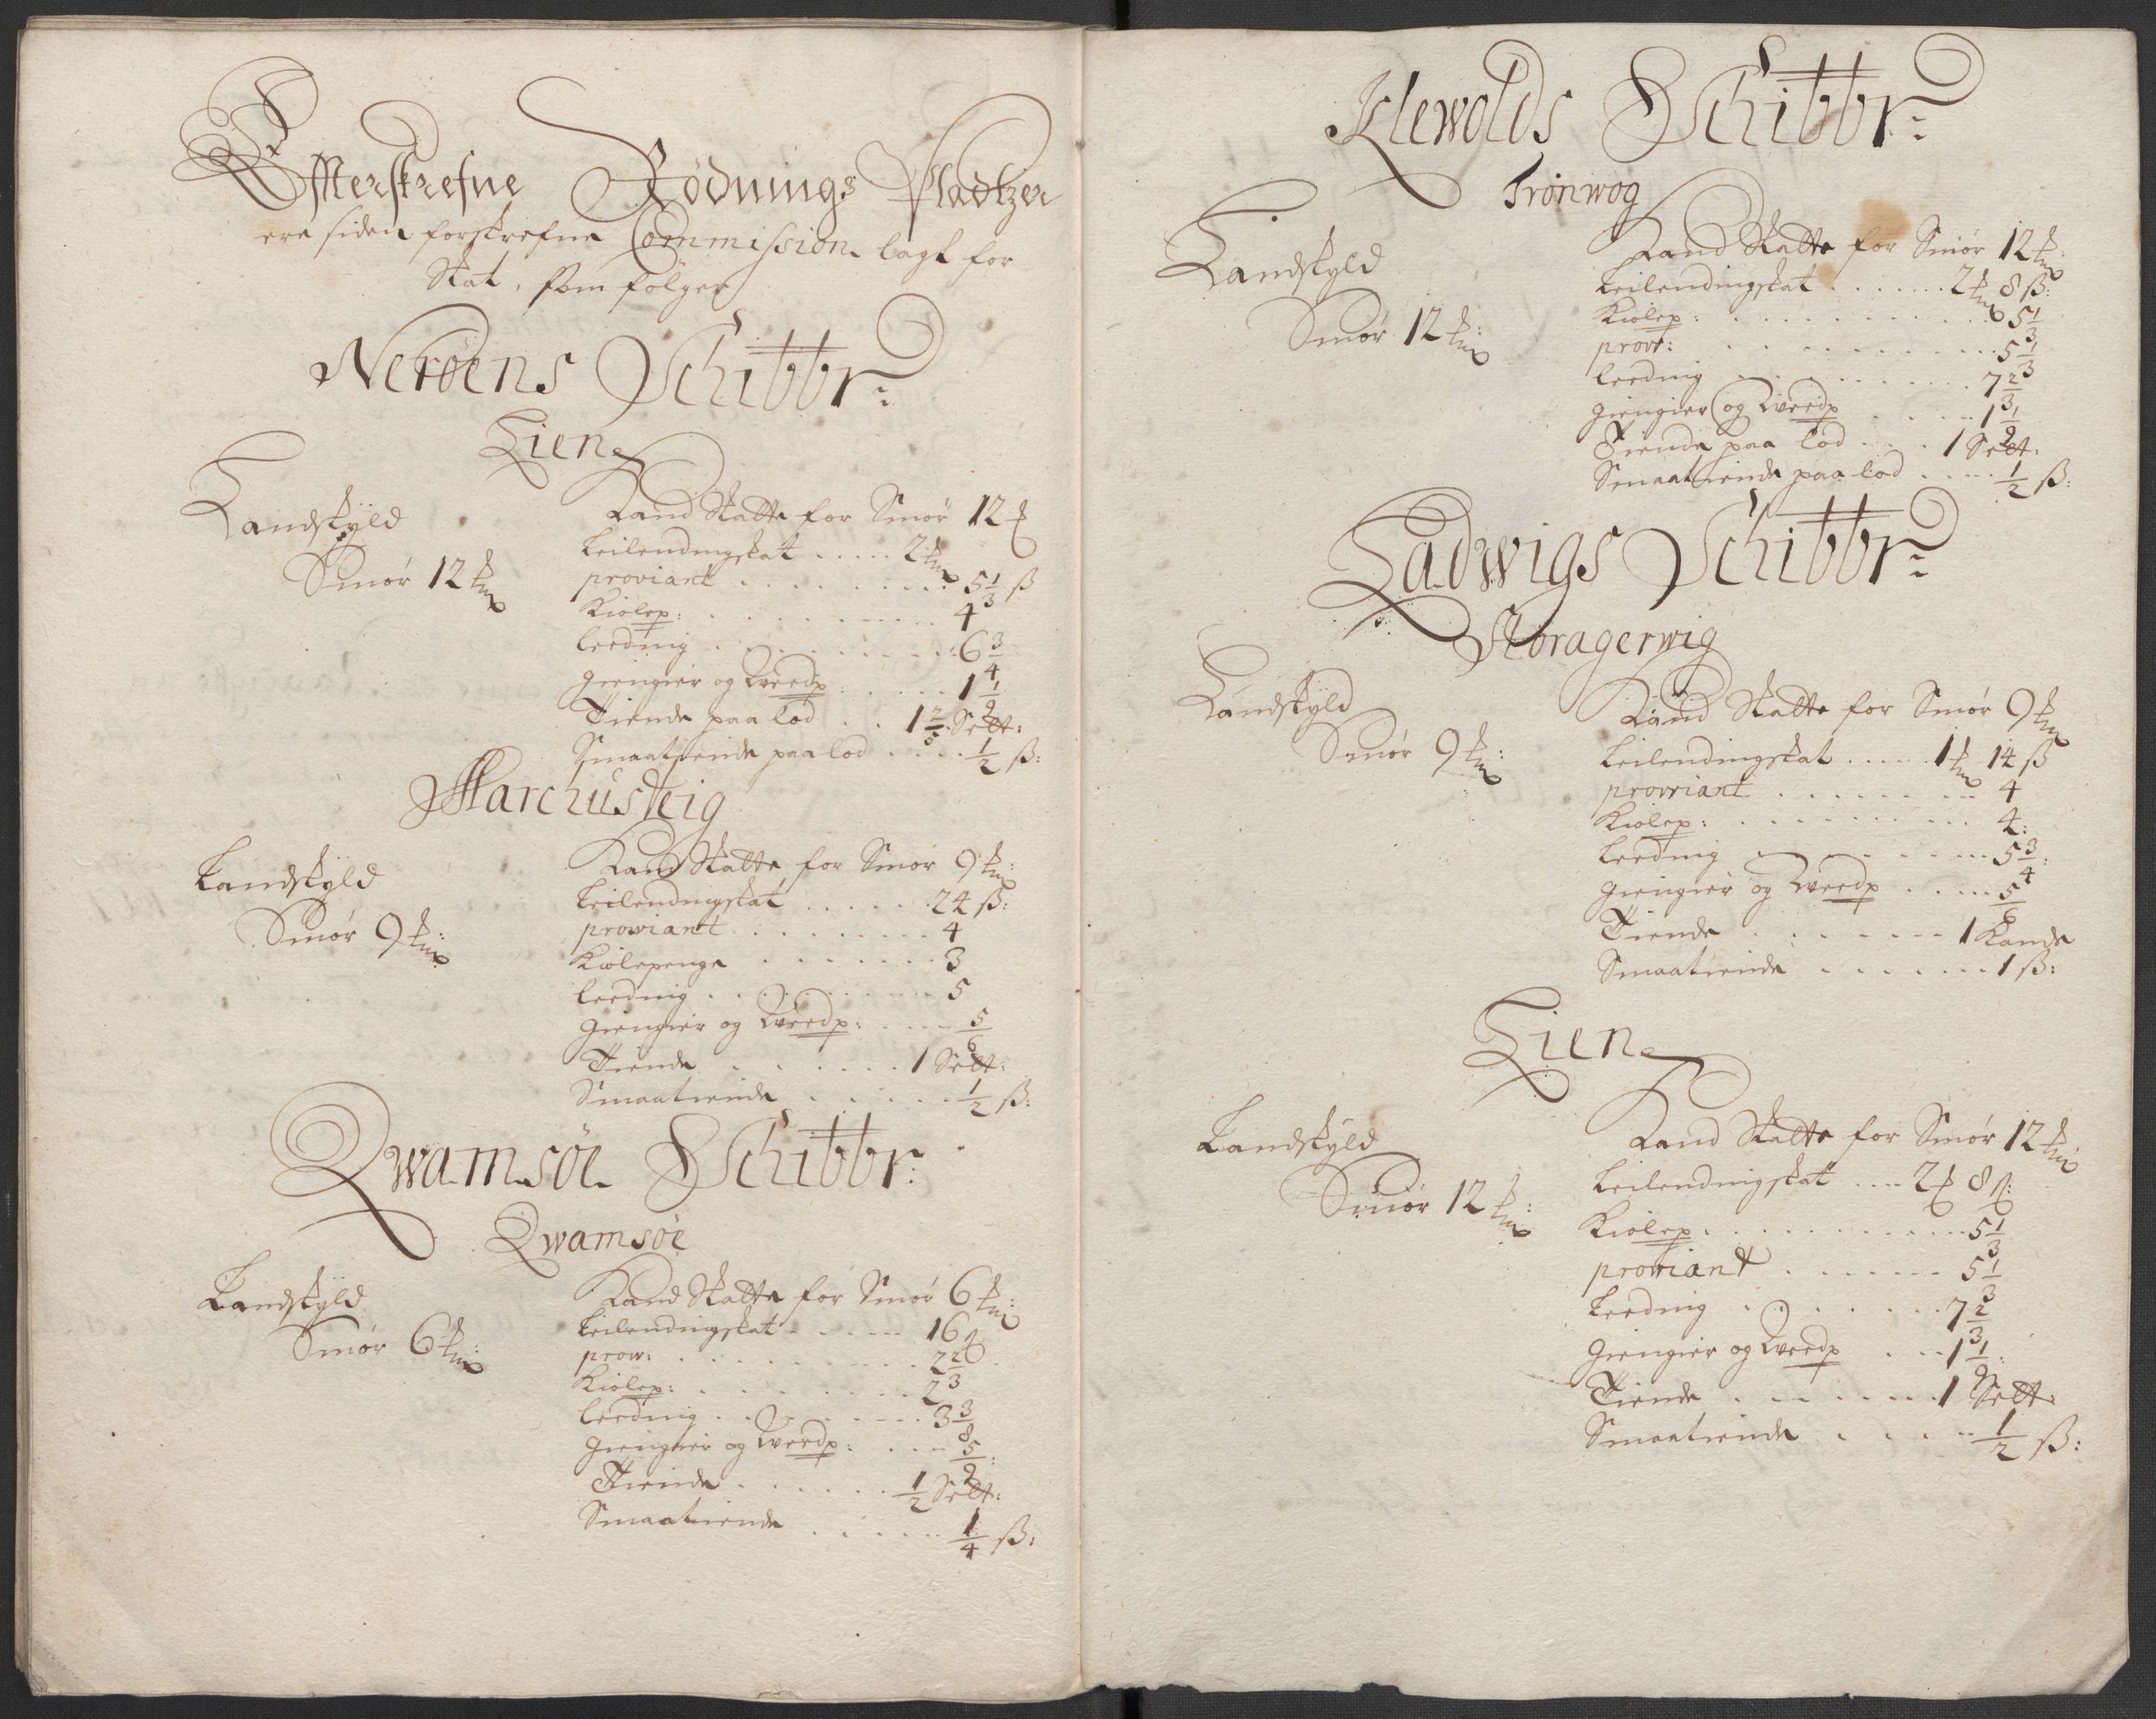 Efterskrefne Rødnings Pladtzer
ere siden forskrefne Commission lagt for
Skat, som følger
Nerøens Schibbr:
Lien
Landskyld
Smør 12
Land Skatte for Smør 12
Leilendingskat ..... 2
proviant ........ 5 1/3 ß
Kiølep: ......... 4
Leeding ......... 6 3/4
Giengier og Wordp: ..... 1 1/9
Tiende paa lod .. 1 2/5 Sett:
Smaatiende paa lod .... 1/2 ß:
Marchusteig
Landskyld
Smør 9
Land Skatte for Smør 9
Leilendingskat ...... 24 ß:
proviant ........ 4
Kiølepenge ....... 3
Leeding ......... 5
Giengier og Wordp: .... 5/6
Tiende ....... 1 Sett:
Smaatiende ...... 1/2 ß:
Qwamsøe Schibbr:
Qwamsøe
Landskyld
Smør 6
Land Skatte for Smør 6
Leilendingskat ..... 16
prow: ......... 2 2/3
Kiølep: ........ 2
Leeding ........ 3 3/8
Giengier og Wordp: .... 5/9
Tiende ...... 1/2 Sett:
Smaatiende ...... 1/4 ß:
Klewolds Schibbr:
Trønwog
Landskyld
Smør 12
Land Skatte for Smør 12
Leilendingskat ...... 2 8 ß:
Kiølep: .......... 5 1/3
provi: .......... 5 1/3
Leeding ......... 7 2/3
Giengier og Wordp ..... 1 1/9
Tiende paa lod .... 1 Sett:
Smaatiende paa lod .... 1/2 ß:
Ladwigs Schibbr:
Storagerwig
Landskyld
Smør 9
Land Skatte for Smør 9
Leilendingskat ..... 1 14 ß
provriant ........ 4
Kiølep: ......... 4:
Leeding ........ 5 3/4:
Giengier og Wordp ..... 5/6
Tiende ....... 1 Kande
Smaatiende ....... 1 ß:
Lien
Landskyld
Smør 12
Land Skatte for Smør 12
Leilendingskat .... 2 8
Kiølep: .......... 5 1/3
proviant ....... 5 1/3
Leeding ........ 7 2/3
Giengier og Wordp ... 1 1/9:
Tiende ....... 1 Sett:
Smaatiende ..... 1/2 ß: